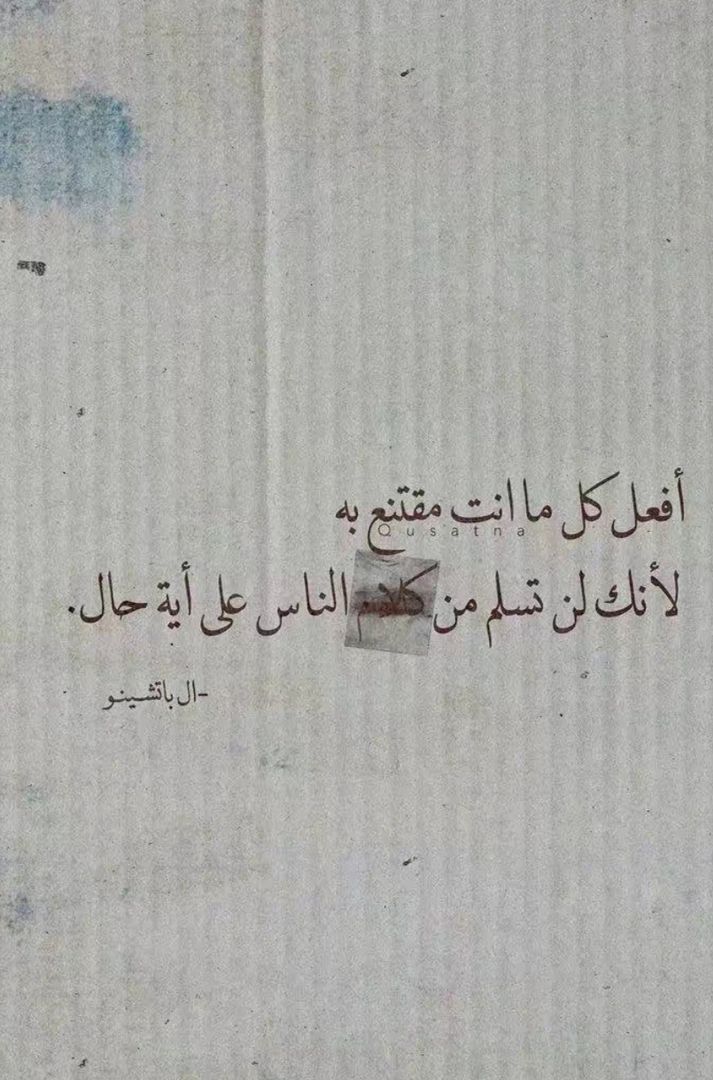 أفعل كل ما انت مقتنع به
Qusatna
لأنك لن تسلم من كلام الناس على أية حال.
-ال باتشينو